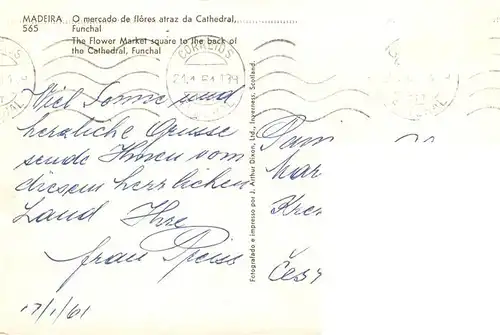 MADEIRA. O mercado de flôres atraz da Cathedral,
565 Funchal
The Flower Market square to the back of
the Cathedral, Funchal
CORREIOS
Viel Sonne und
herzliche Grüsse
sende Ihnen vom
diesem herrlichen
Land Ihre
Frau Preiss
17/1/61
Fotografado e impresso por J. Arthur Dixon, Ltd., Inverness, Scotland.
Pani
Mar
Kre
Česk